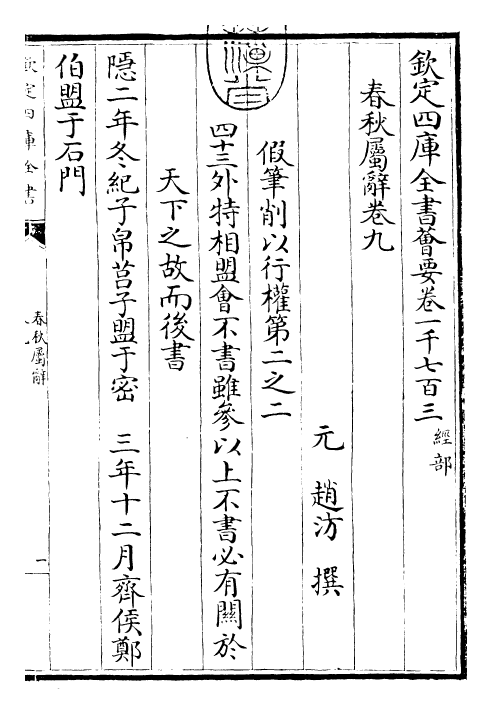 欽定四庫全書薈要卷一千七百三 經部
春秋屬辭卷九
元 趙汸 撰
假筆削以行權第二之二
四十三外特相盟會不書雖參以上不書必有關於
天下之故而後書
隱二年冬紀子帛莒子盟于密 三年十二月齊侯鄭
伯盟于石門
欽定四庫全書
春秋屬辭
一